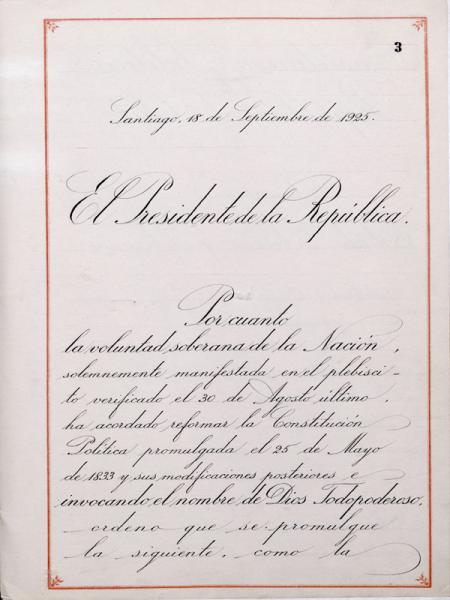 3
Santiago, 18 de Septiembre de 1925.
El Presidente de la República.
Por cuanto
la voluntad soberana de la Nación,
solemnemente manifestada en el plebisci-
to verificado el 30 de Agosto último,
ha acordado reformar la Constitución
Política promulgada el 25 de Mayo
de 1833 y sus modificaciones posteriores e
invocando el nombre de Dios Todopoderoso,
ordeno que se promulgue
la siguiente, como la